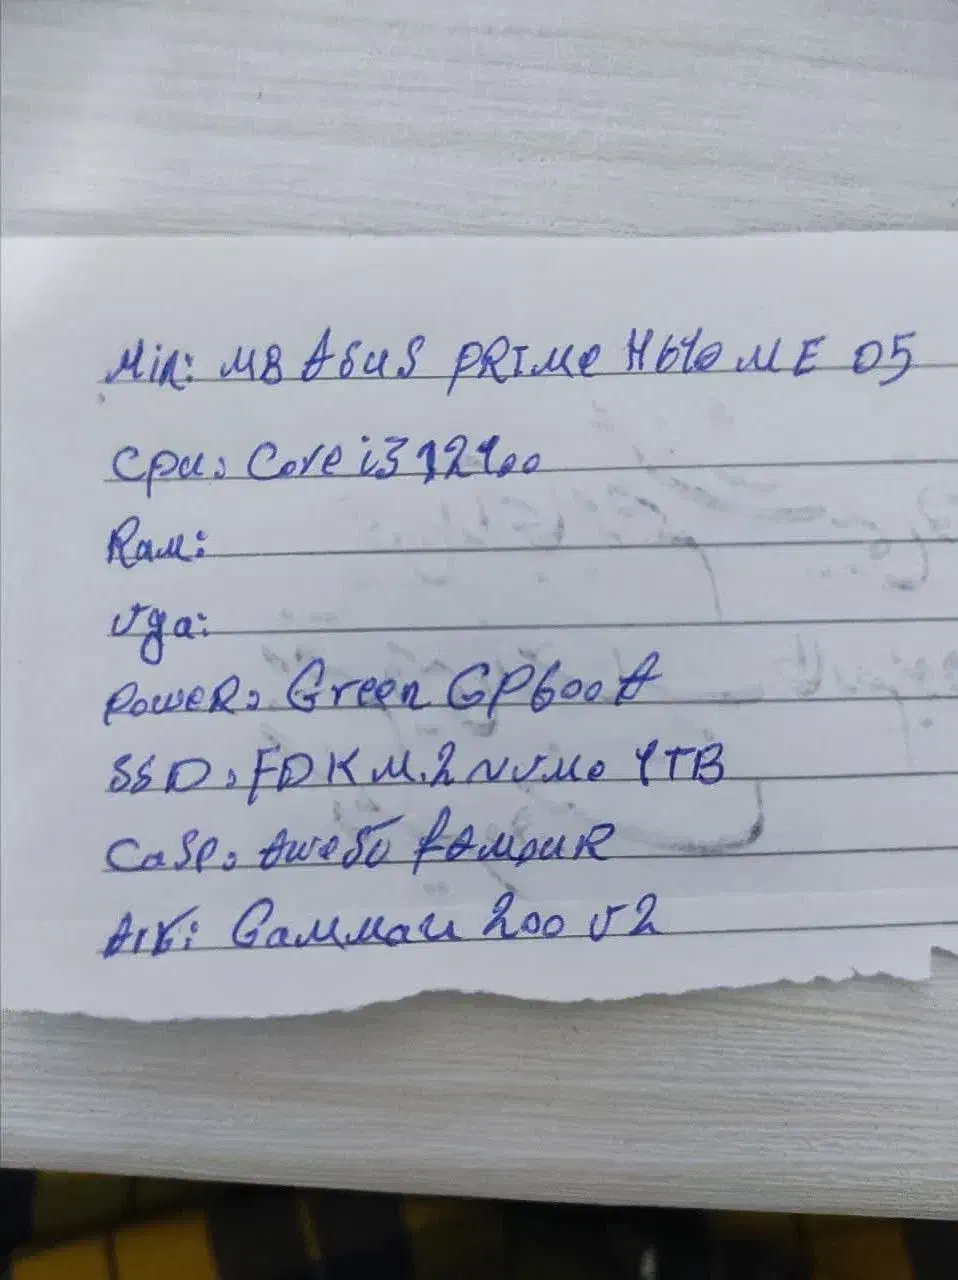 Min: MB ASUS PRIMe H610 ME D5
Cpu: Core i3 12100
Ram:
Vga:
PoweR: Green GP600A
SSD: FDK M.2 NVMe 1TB
Case: Awest
Air: Gammau 200 V2